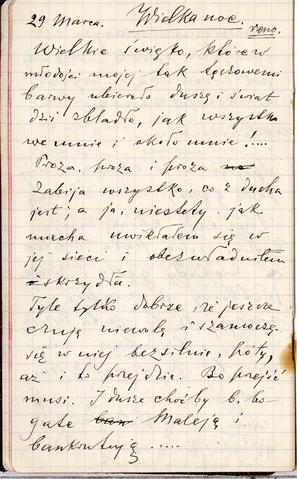 29 Marca. Wielka noc.
reno.
Wielkie święto, które w
młodości mojej tak tęczowemi
barwy ubierało duszę i świat
dziś zbladło, jak wszystko
we mnie i około mnie!....
Proza. proza i proza
zabija wszystko, co z ducha
jest; a ja, niestety, jak
mucha uwikłałem się w
jej sieci i obezwładniłem
skrzydła.
Tyle tylko dobrze, że jeszcze
czuję niewolę i szamoczę
się w niej bezsilnie, póty,
aż i to przejdzie. Bo przejść
musi. I dusze choćby b. bo-
gate maleją i
bankrutują .....